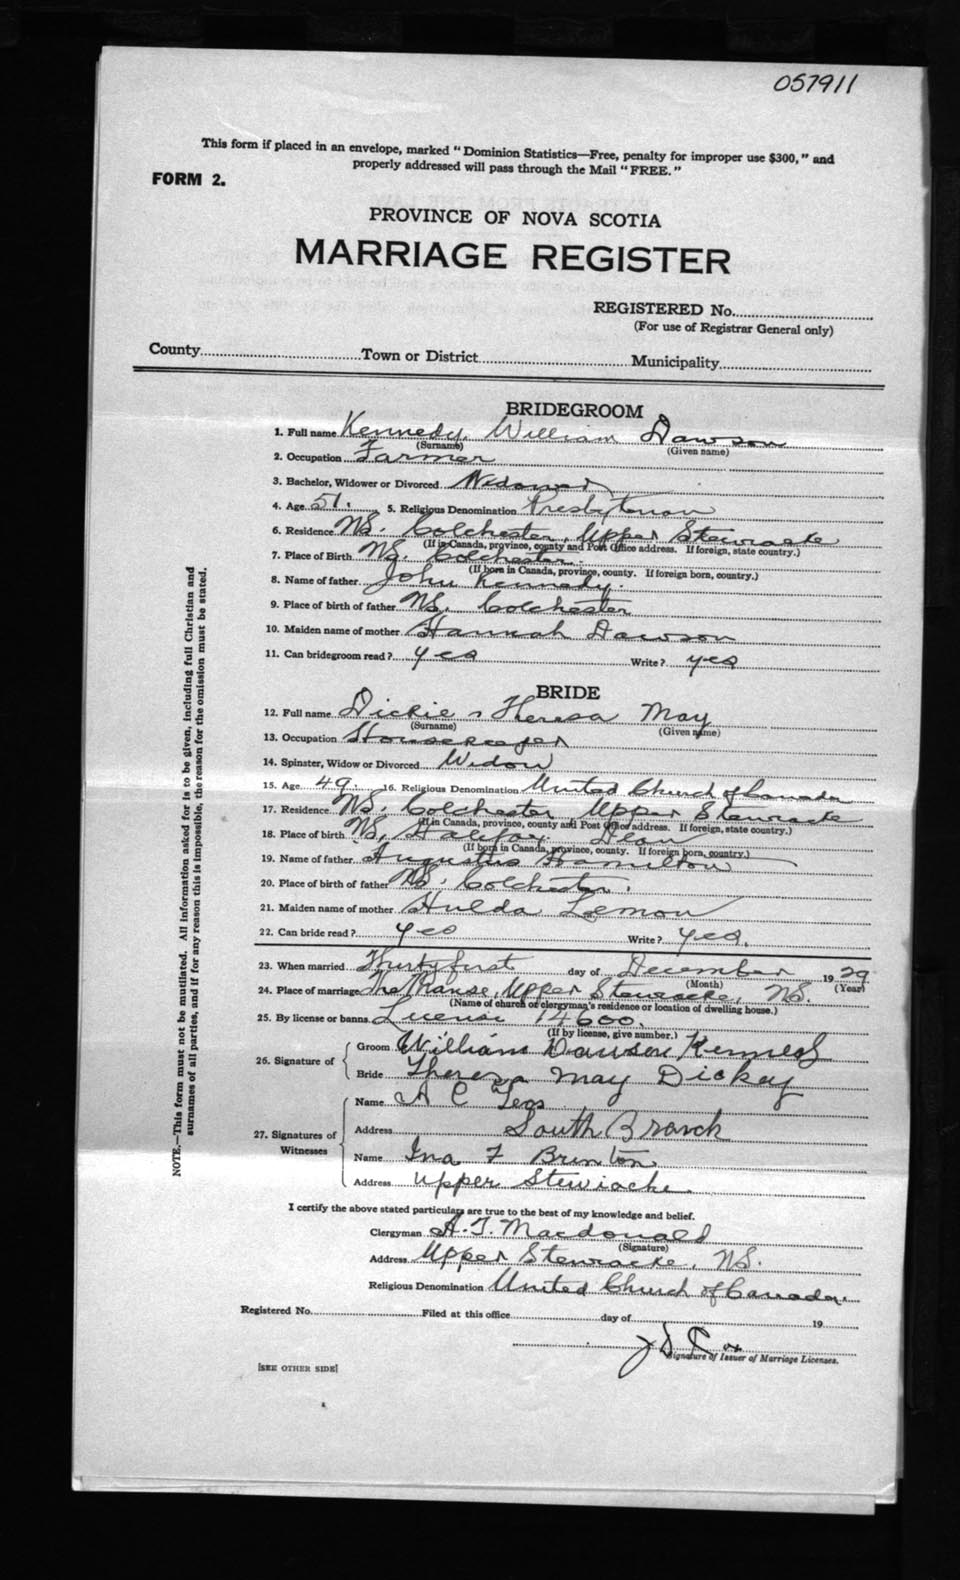 057911
This form if placed in an envelope, marked "Dominion Statistics—Free, penalty for improper use $300," and
properly addressed will pass through the Mail "FREE."
FORM 2.
PROVINCE OF NOVA SCOTIA
MARRIAGE REGISTER
REGISTERED No.
(For use of Registrar General only)
County Town or District Municipality
BRIDEGROOM
1. Full name Kennedy, William Dawson
(Surname) (Given name)
2. Occupation Farmer
3. Bachelor, Widower or Divorced Widower
4. Age 51. 5. Religious Denomination Presbyterian
6. Residence NS. Colchester, Upper Stewiacke
(If in Canada, province, county and Post Office address. If foreign, state country.)
7. Place of Birth NS. Colchester.
(If born in Canada, province, county. If foreign born, country.)
8. Name of father John Kennedy.
9. Place of birth of father NS. Colchester
10. Maiden name of mother Hannah Dawson
11. Can bridegroom read? yes Write? yes
BRIDE
12. Full name Dickie, Theresa May
(Surname) (Given name)
13. Occupation Housekeeper
14. Spinster, Widow or Divorced Widow
15. Age 49. 16. Religious Denomination United Church of Canada
17. Residence NS. Colchester Upper Stewiacke
(If in Canada, province, county and Post Office address. If foreign, state country.)
18. Place of birth NS, Halifax, Dean
(If born in Canada, province, county. If foreign born, country.)
19. Name of father Augustus Hamilton
20. Place of birth of father NS. Colchester.
21. Maiden name of mother Hulda Lemon
22. Can bride read? yes Write? yes.
23. When married Thirty first day of December 1929
(Month) (Year)
24. Place of marriage The Manse, Upper Stewiacke, NS.
(Name of church of clergyman's residence or location of dwelling house.)
25. By license or banns License 14600.
(If by license, give number.)
26. Signature of Groom William Dawson Kennedy
Bride Theresa May Dickey
27. Signatures of Witnesses
Name A C
Address South Branch
Name Ina F Brenton
Address Upper Stewiacke.
I certify the above stated particulars are true to the best of my knowledge and belief.
Clergyman A. T. Macdonald
(Signature)
Address Upper Stewiacke, NS.
Religious Denomination United Church of Canada.
Registered No. Filed at this office day of 19
J D Cox
Signature of Issuer of Marriage Licenses.
[SEE OTHER SIDE]
NOTE.—This form must not be mutilated. All information asked for is to be given, including full Christian and
surnames of all parties, and if for any reason this is impossible, the reason for the omission must be stated.